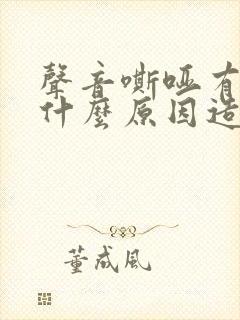 聲音嘶啞有
什麼原因造
董成風